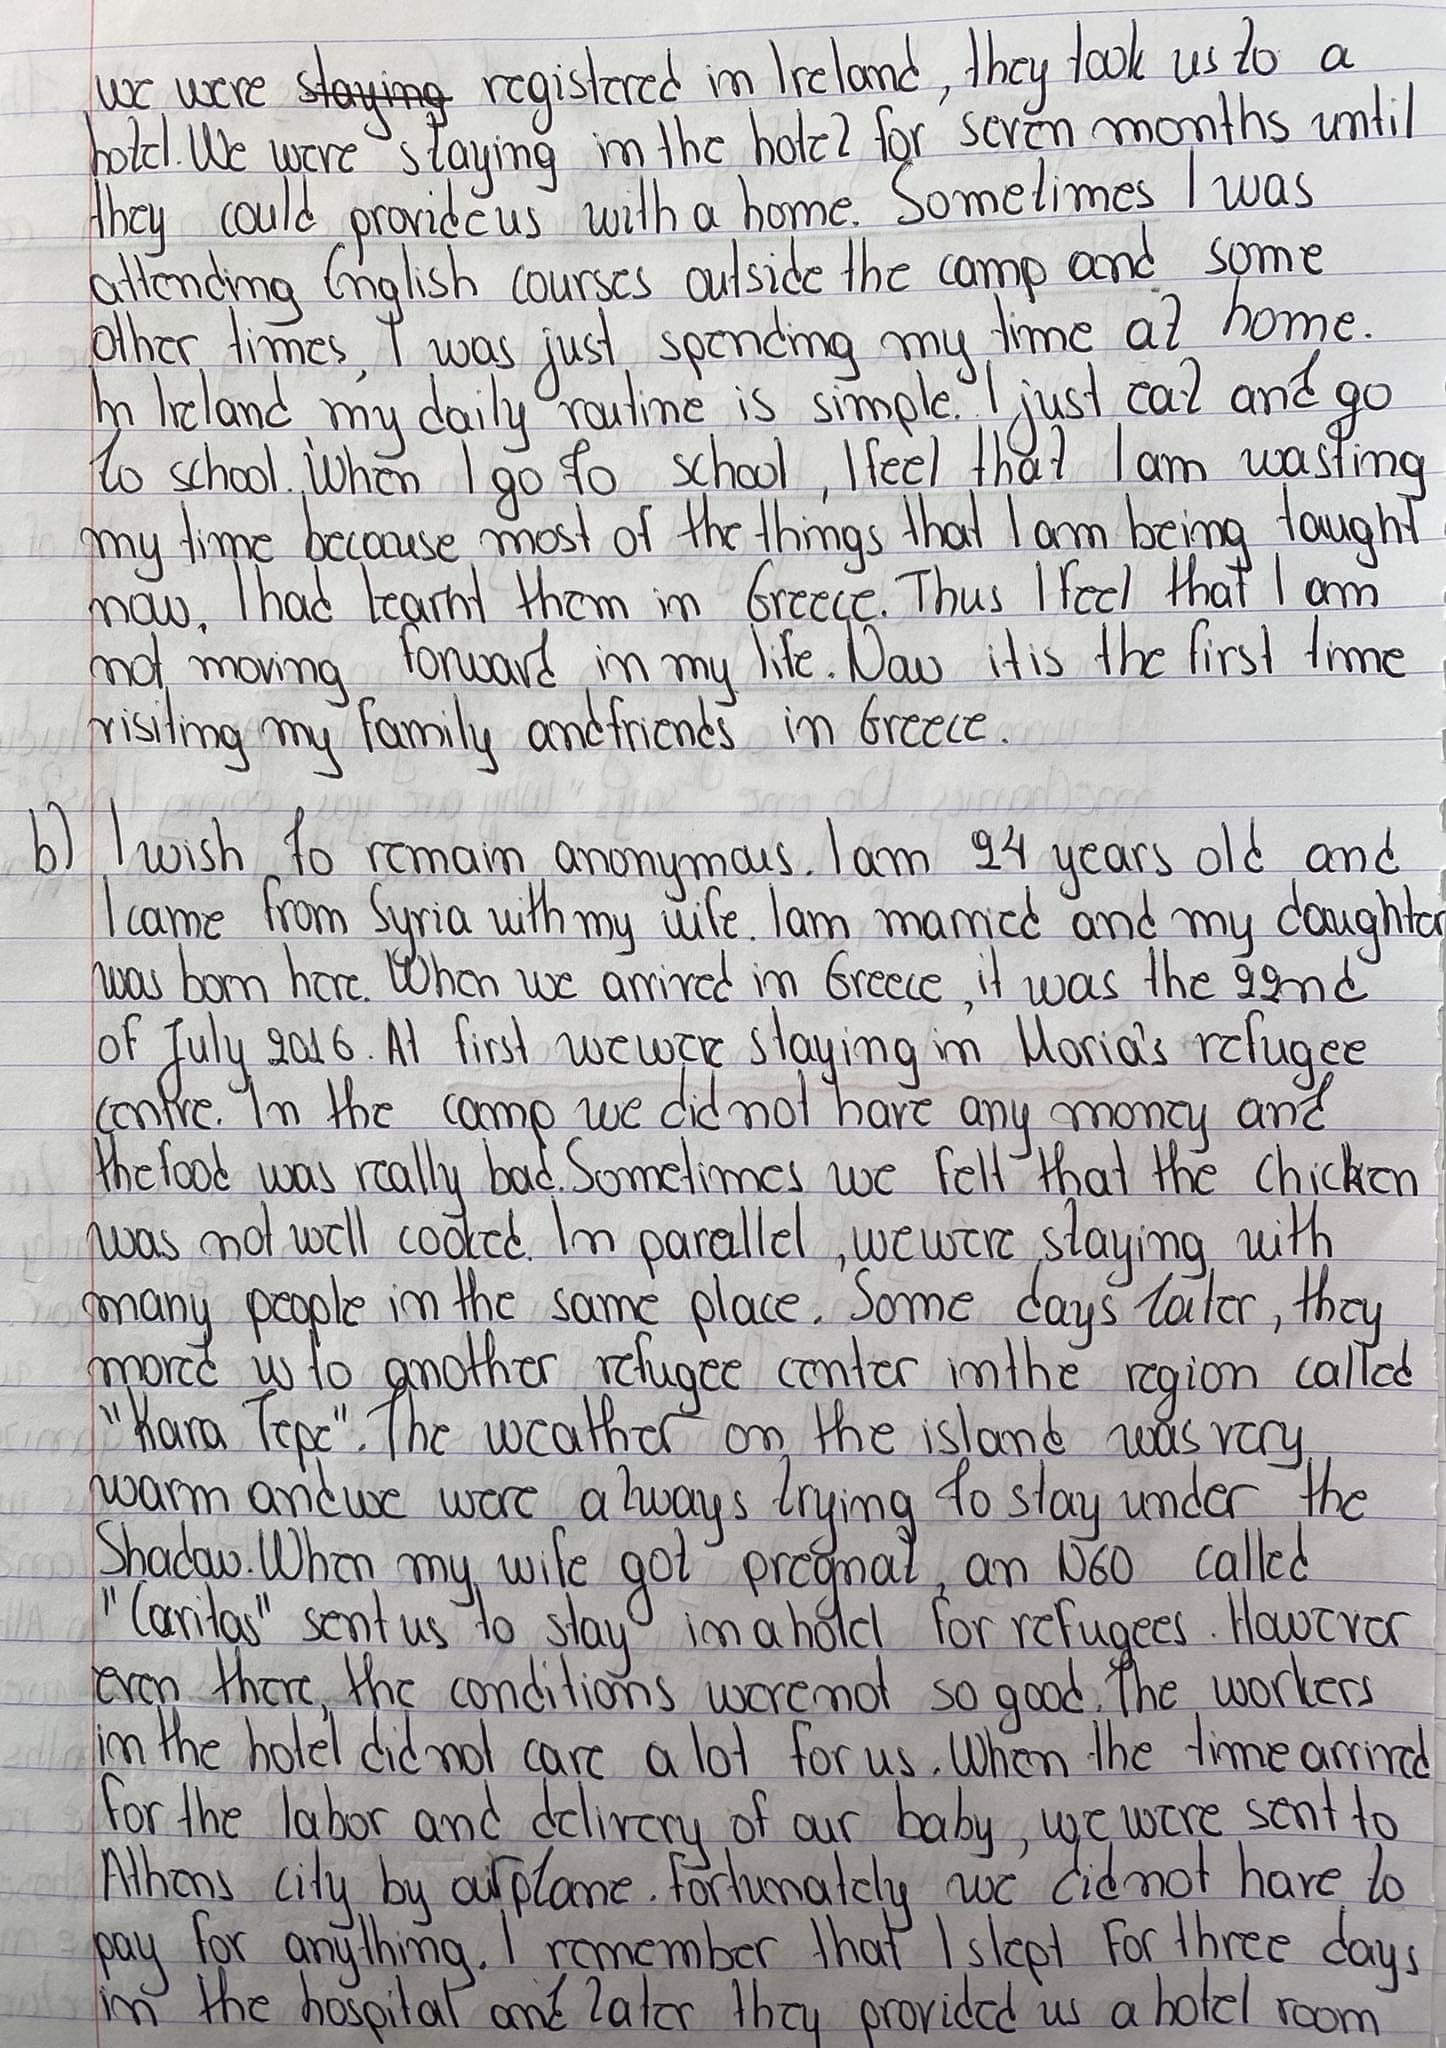 we were staying registered in Ireland, they took us to a
hotel. We were staying in the hotel for seven months until
they could provide us with a home. Sometimes I was
attending English courses outside the camp and some
other times, I was just spending my time at home.
In Ireland my daily routine is simple. I just eat and go
to school. When I go to school, I feel that I am wasting
my time because most of the things that I am being taught
now, I had learnt them in Greece. Thus I feel that I am
not moving forward in my life. Now it is the first time
visiting my family and friends in Greece.
b) I wish to remain anonymous. I am 24 years old and
I came from Syria with my wife. I am married and my daughter
was born here. When we arrived in Greece, it was the 22nd
of July 2016. At first we were staying in Moria's refugee
centre. In the camp we did not have any money and
the food was really bad. Sometimes we felt that the chicken
was not well cooked. In parallel, we were staying with
many people in the same place. Some days later, they
moved us to another refugee center in the region called
"Kara Tepe". The weather on the island was very
warm and we were always trying to stay under the
Shadow. When my wife got pregnat, an NGO called
"Caritas" sent us to stay in a hotel for refugees. However
even there, the conditions were not so good. The workers
in the hotel did not care a lot for us. When the time arrived
for the labor and delivery of our baby, we were sent to
Athens city by airplane. Fortunately we did not have to
pay for anything. I remember that I slept for three days
in the hospital and later they provided us a hotel room